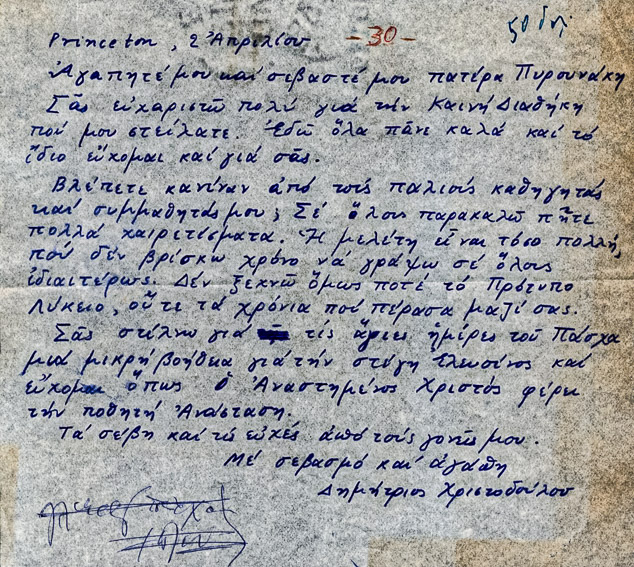 50 δρ
Princeton, 2 Ἀπριλίου -30-
Ἀγαπητέ μου καί σεβαστέ μου πατέρα Πυρουνάκη
Σᾶς εὐχαριστῶ πολύ γιά τήν Καινή Διαθήκη
πού μου στείλατε. Ἐδῶ ὅλα πᾶνε καλά καί τό
ἴδιο εὔχομαι καί γιά σᾶς.
Βλέπετε κανέναν ἀπό τούς παλιούς καθηγητάς
καί συμμαθητάς μου; Σέ ὅλους παρακαλῶ πῆτε
πολλά χαιρετίσματα. Ἡ μελέτη εἶναι τόσο πολλή,
πού δέν βρίσκω χρόνο νά γράψω σέ ὅλους
ἰδιαιτέρως. Δέν ξεχνῶ ὅμως ποτέ τό Πρότυπο
Λύκειο, οὔτε τά χρόνια πού πέρασα μαζί σας.
Σᾶς στέλνω γιά τίς ἅγιες ἡμέρες τοῦ Πάσχα
μιά μικρή βοήθεια γιά τήν στέγη Ἐλευσῖνος καί
εὔχομαι ὅπως Ὁ Ἀναστημένος Χριστός φέρει
τήν ποθητή Ἀνάσταση.
Τά σέβη καί τίς εὐχές ἀπό τούς γονεῖς μου.
Μέ σεβασμό καί ἀγάπη
Δημήτριος Χριστοδούλου